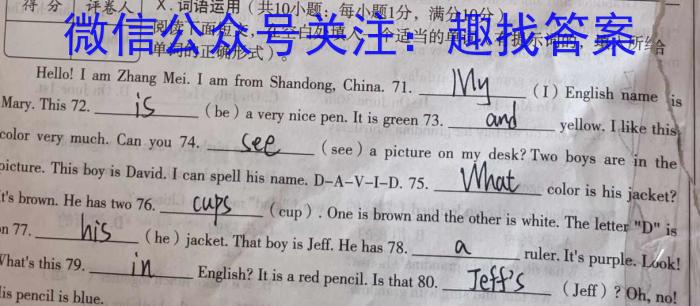 得分 评卷人 X. 词语运用（共10小题；每小题1分，满分10分）
微信公众号关注：趣找答案
单词的正确形式）。
Hello! I am Zhang Mei. I am from Shandong, China. 71. My (I) English name is
Mary. This 72. is (be) a very nice pen. It is green 73. and yellow. I like this
color very much. Can you 74. see (see) a picture on my desk? Two boys are in the
picture. This boy is David. I can spell his name. D-A-V-I-D. 75. What color is his jacket?
It's brown. He has two 76. cups (cup). One is brown and the other is white. The letter "D" is
on 77. his (he) jacket. That boy is Jeff. He has 78. a ruler. It's purple. Look!
What's this 79. in English? It is a red pencil. Is that 80. Jeff's (Jeff)? Oh, no!
His pencil is blue.